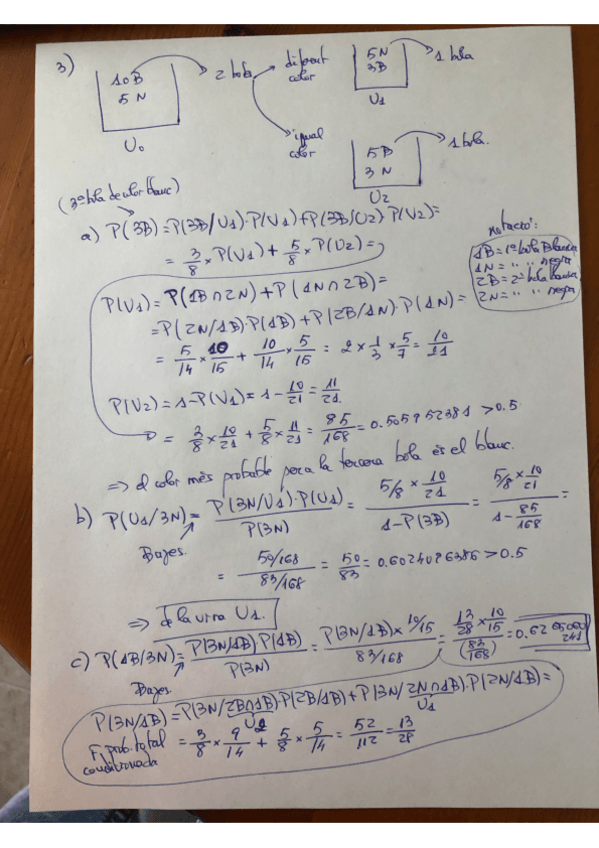 3)
10B
5N
U0
2 bola
diferent color
igual color
5N
3B
U1
1 bola
5B
3N
U2
1 bola.
(3ª bola de color blanc)
a) P(3B)=P(3B/U1)·P(U1)+P(3B/U2)·P(U2)=
= 3/8 × P(U1) + 5/8 × P(U2) =
notació:
1B = 1ª bola Blanca
1N = " " negra
2B = 2ª bola blanca
2N = " " negra
P(U1) = P(1B∩2N)+P(1N∩2B)=
=P(2N/1B)·P(1B)+P(2B/1N)·P(1N)=
= 5/14 × 10/15 + 10/14 × 5/15 = 2 × 1/3 × 5/7 = 10/21
P(U2)=1-P(U1)=1-10/21=11/21
= 3/8 × 10/21 + 5/8 × 11/21 = 85/168 = 0.505952381 >0.5
=> el color més probable per a la tercera bola és el blanc.
b) P(U1/3N) = P(3N/U1)·P(U1)/P(3N) = (5/8 × 10/21)/(1-P(3B)) = (5/8 × 10/21)/(1-85/168) =
Bayes.
= (50/168)/(83/168) = 50/83 = 0.6024096386 >0.5
=> de la urna U1.
c) P(1B/3N) = P(3N/1B)·P(1B)/P(3N) = (P(3N/1B) × 10/15)/(83/168) = (13/28 × 10/15)/(83/168) = 0.6265060241
Bayes.
P(3N/1B)=P(3N/2B∩1B)·P(2B/1B)+P(3N/2N∩1B)·P(2N/1B)=
U2
U1
F. prob. total condicionada
= 3/8 × 9/14 + 5/8 × 5/14 = 52/112 = 13/28